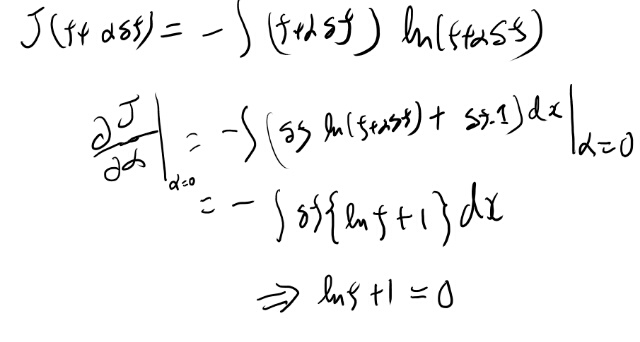 J(f+αδf) = -∫(f+αδf) ln(f+αδf)
∂J/∂α|α=0 = -∫(δf ln(f+αδf) + δf·1)dx|α=0
= -∫δf{ln f+1}dx
⇒ ln f+1=0